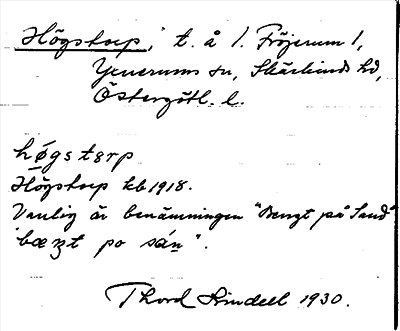 Högstorp, t. å l. Fröjerum 1,
Yxnerums sn, Skärkinds hd,
Östergötl. l.
högstərp
Högstorp kb 1918.
Vanlig är benämningen "Bengt på Sand"
"bæŋt po sán".
Thord Lindell 1930.